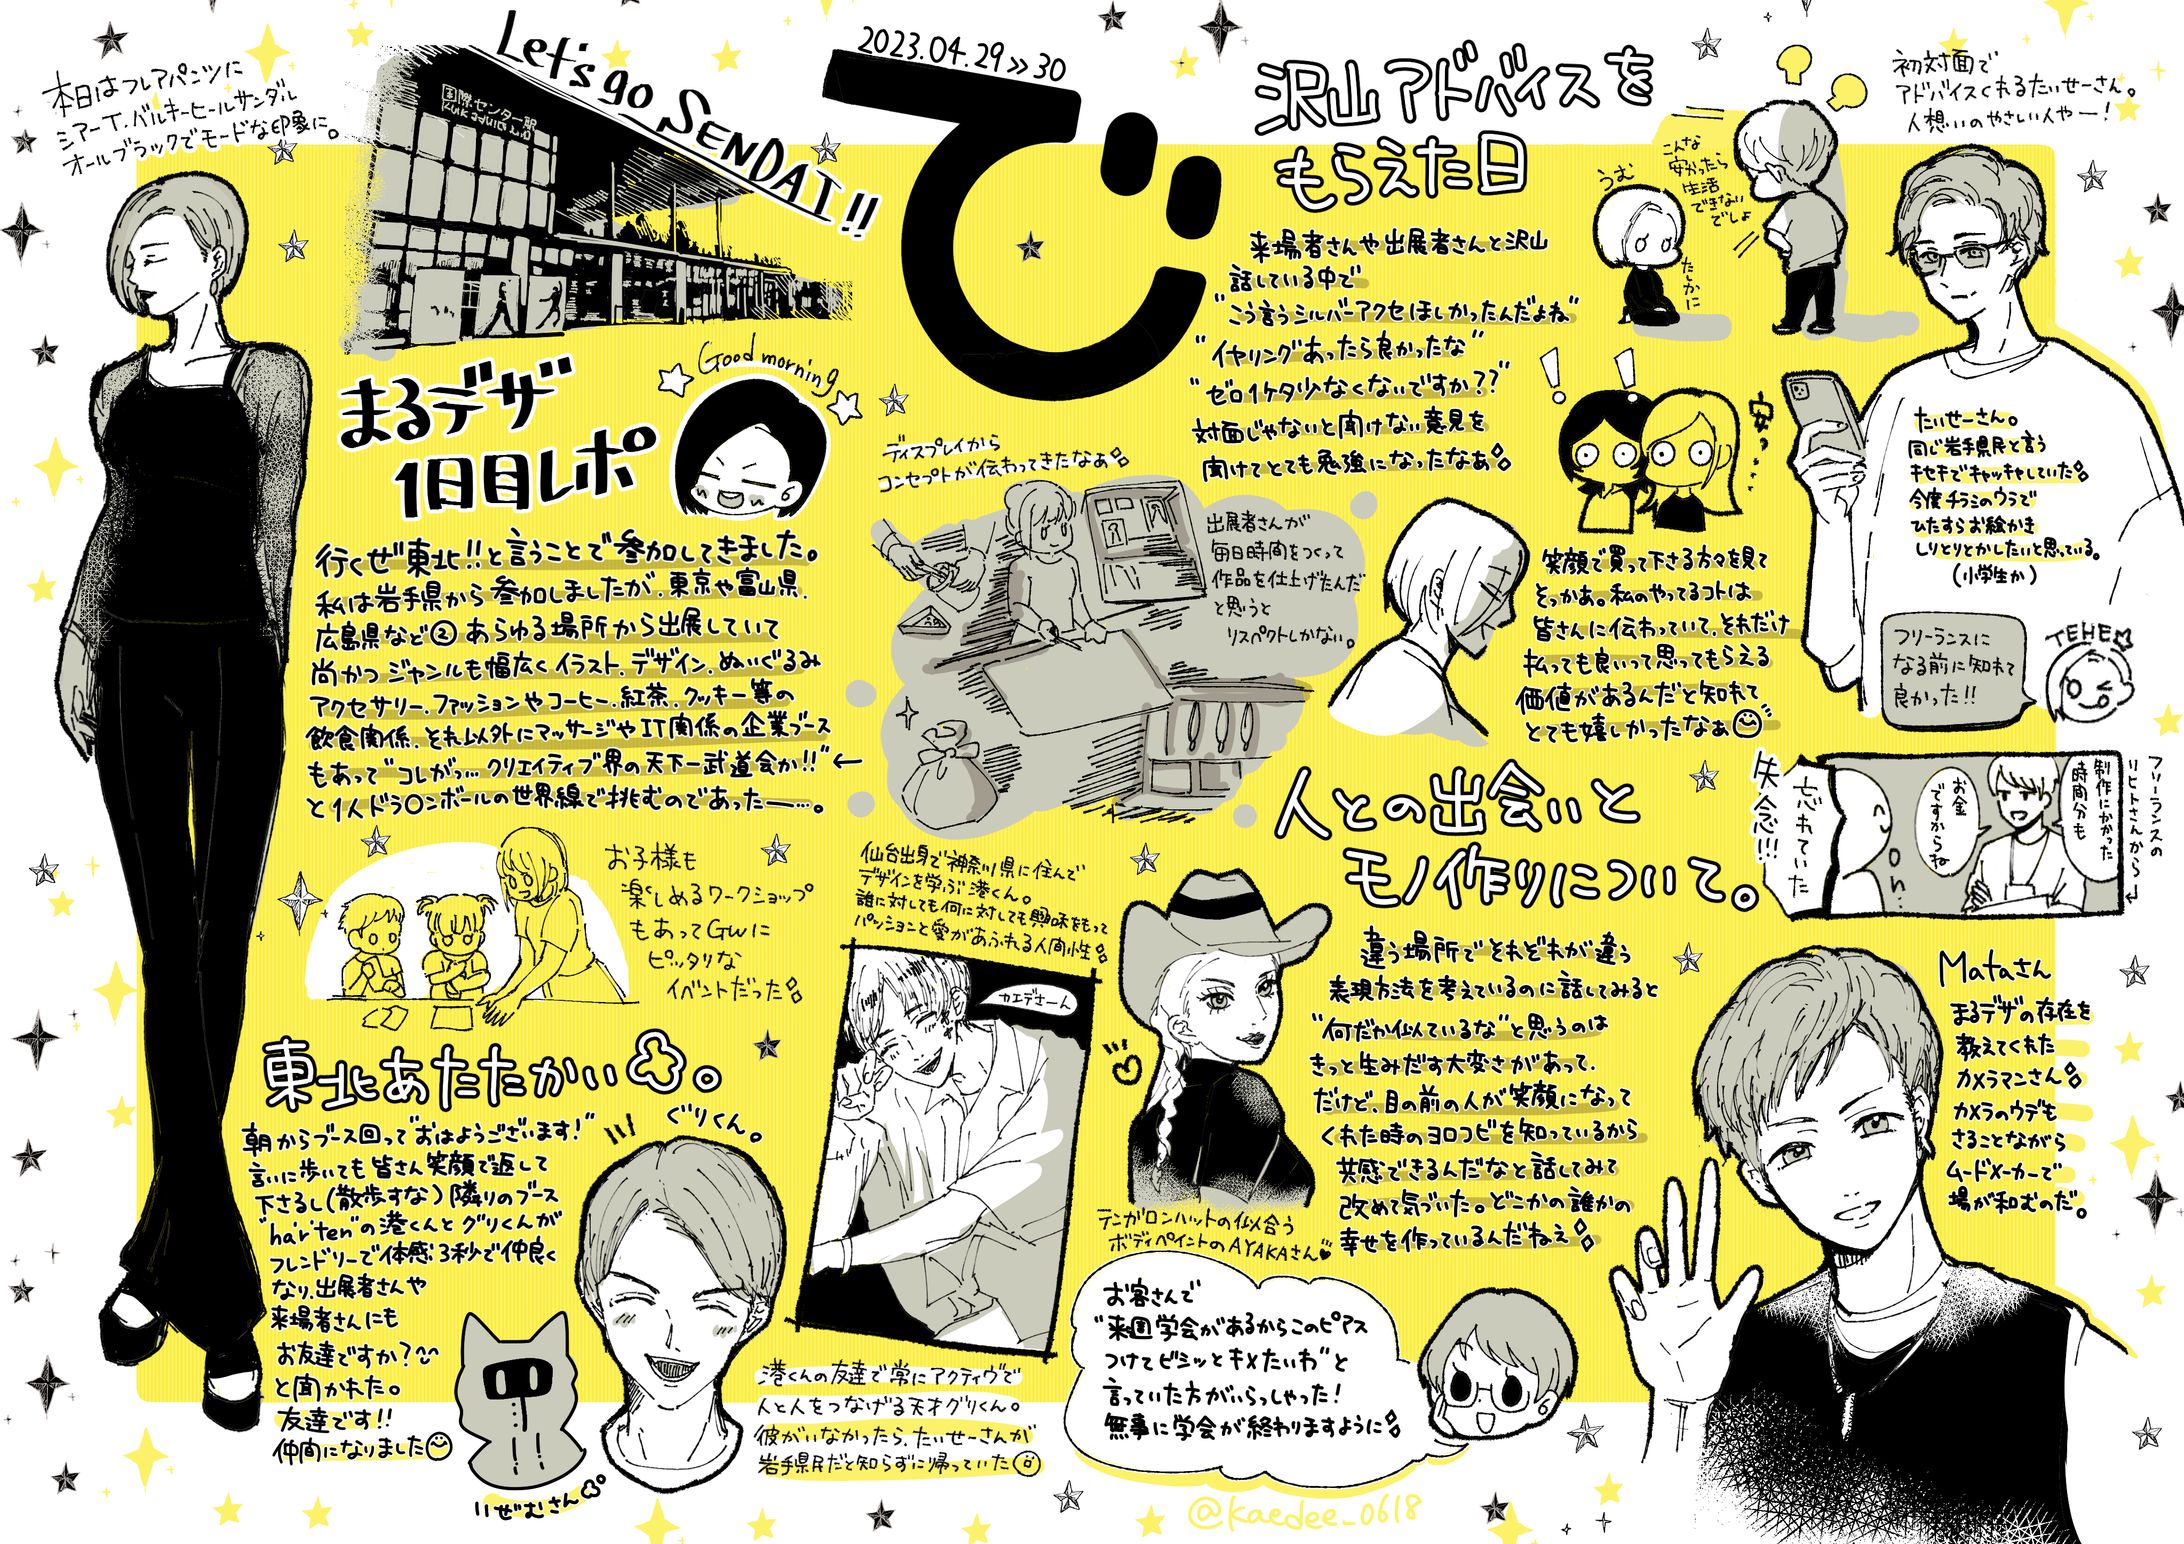 本日はフレアパンツに
シアーT、バルキーヒールサンダル
オールブラックでモードな印象に。
Let's go SENDAI!!
国際センター駅
2023.04.29>>30
で
まるデザ
1日目レポ
Good morning
行くぜ東北!!と言うことで参加してきました。
私は岩手県から参加しましたが、東京や富山県、
広島県など②あらゆる場所から出展していて
尚かつジャンルも幅広くイラスト、デザイン、ぬいぐるみ
アクセサリー、ファッションやコーヒー、紅茶、クッキー等の
飲食関係、それ以外にマッサージやIT関係の企業ブース
もあって"コレがっ…クリエイティブ界の天下一武道会か!!"←
と1人ドラ〇ンボールの世界線で挑むのであったー…。
お子様も
楽しめるワークショップ
もあってGWに
ピッタリな
イベントだった
東北あたたかい。
朝からブース回って"おはようございます!"
言いに歩いても皆さん笑顔で返して
下さるし(散歩すな)隣りのブース
"har'ten"の港くんとグリくんが
フレンドリーで体感3秒で仲良く
なり、出展者さんや
来場者さんにも
お友達ですか?
と聞かれた。
友達です!!
仲間になりました
りぜむさん
ぐりくん。
港くんの友達で常にアクティヴで
人と人をつなげる天才グリくん。
彼がいなかったら、たいせーさんが
岩手県民だと知らずに帰っていた
ディスプレイから
コンセプトが伝わってきたなぁ
出展者さんが
毎日時間をつくって
作品を仕上げたんだ
と思うと
リスペクトしかない。
仙台出身で神奈川県に住んで
デザインを学ぶ港くん。
誰に対しても何に対しても興味をもって
パッションと愛があふれる人間性
カエデさーん
沢山アドバイスを
もらえた日
来場者さんや出展者さんと沢山
話している中で
"こう言うシルバーアクセほしかったんだよね"
"イヤリングあったら良かったな"
"ゼロ1ケタ少なくないですか??"
対面じゃないと聞けない意見を
聞けてとても勉強になったなぁ
うむ
たしかに
こんな
安かったら
生活
できない
でしょ
初対面で
アドバイスくれるたいせーさん。
人想いのやさしい人やー!
安っ…
笑顔で買って下さる方々を見て
そっかぁ。私のやってるコトは
皆さんに伝わっていて、それだけ
払っても良いって思ってもらえる
価値があるんだと知れて
とても嬉しかったなぁ
たいせーさん。
同じ岩手県民と言う
キセキでキャッキャしていた
今度チラシのウラで
ひたすらお絵かき
しりとりとかしたいと思っている。
(小学生か)
フリーランスに
なる前に知れて
良かった!!
TEHE
フリーランスの
リヒトさんから↓
制作にかかった
時間分も
お金
ですからね
Oh…
忘れていた
失念!!!
人との出会いと
モノ作りについて。
違う場所でそれぞれが違う
表現方法を考えているのに話してみると
"何だか似ているな"と思うのは
きっと生みだす大変さがあって、
だけど、目の前の人が笑顔になって
くれた時のヨロコビを知っているから
共感できるんだなと話してみて
改めて気づいた。どこかの誰かの
幸せを作っているんだねぇ
テンガロンハットの似合う
ボディペイントのAYAKAさん
お客さんで
"来週学会があるからこのピアス
つけてビシッとキメたいわ"と
言っていた方がいらっしゃった!
無事に学会が終わりますように
Mataさん
まるデザの存在を
教えてくれた
カメラマンさん
カメラのウデも
さることながら
ムードメーカーで
場が和むのだ。
@kaedee_0618